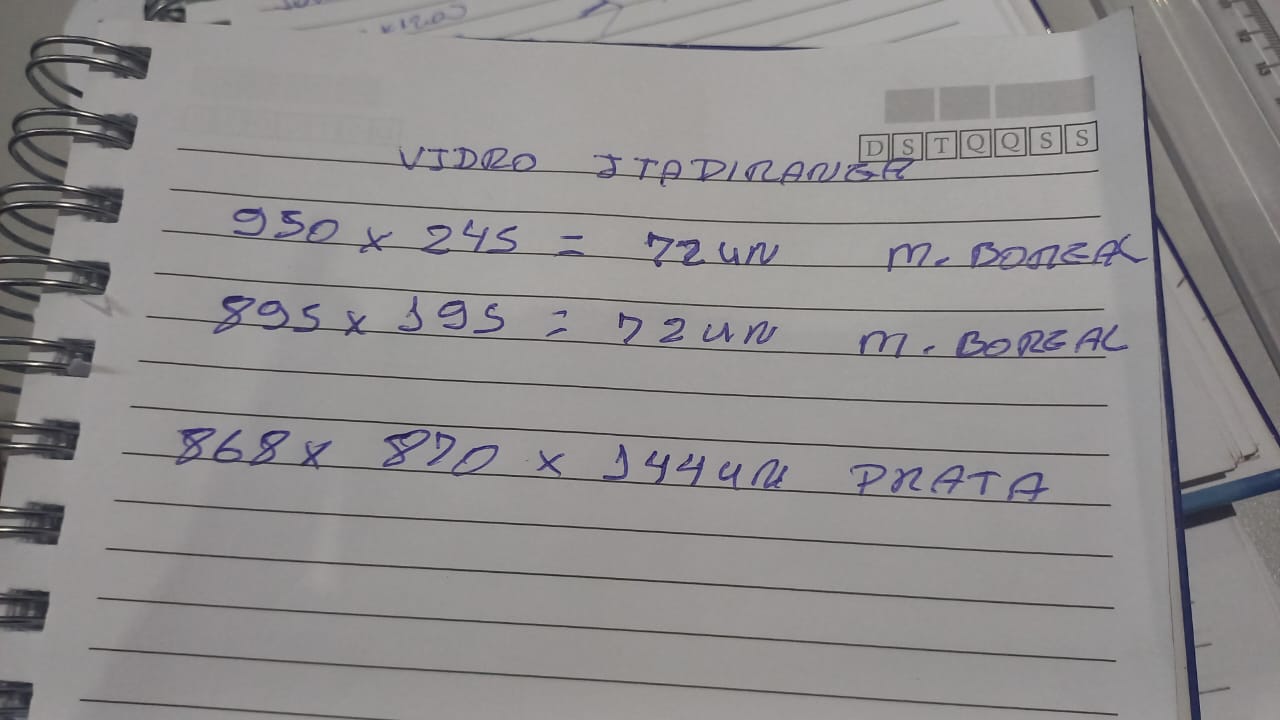 D S T Q Q S S
VIDRO ITAPIRANGA
950 x 245 = 72 UN M. BOREAL
895 x 195 = 72 UN M. BOREAL
868 x 870 x 144 UN PRATA